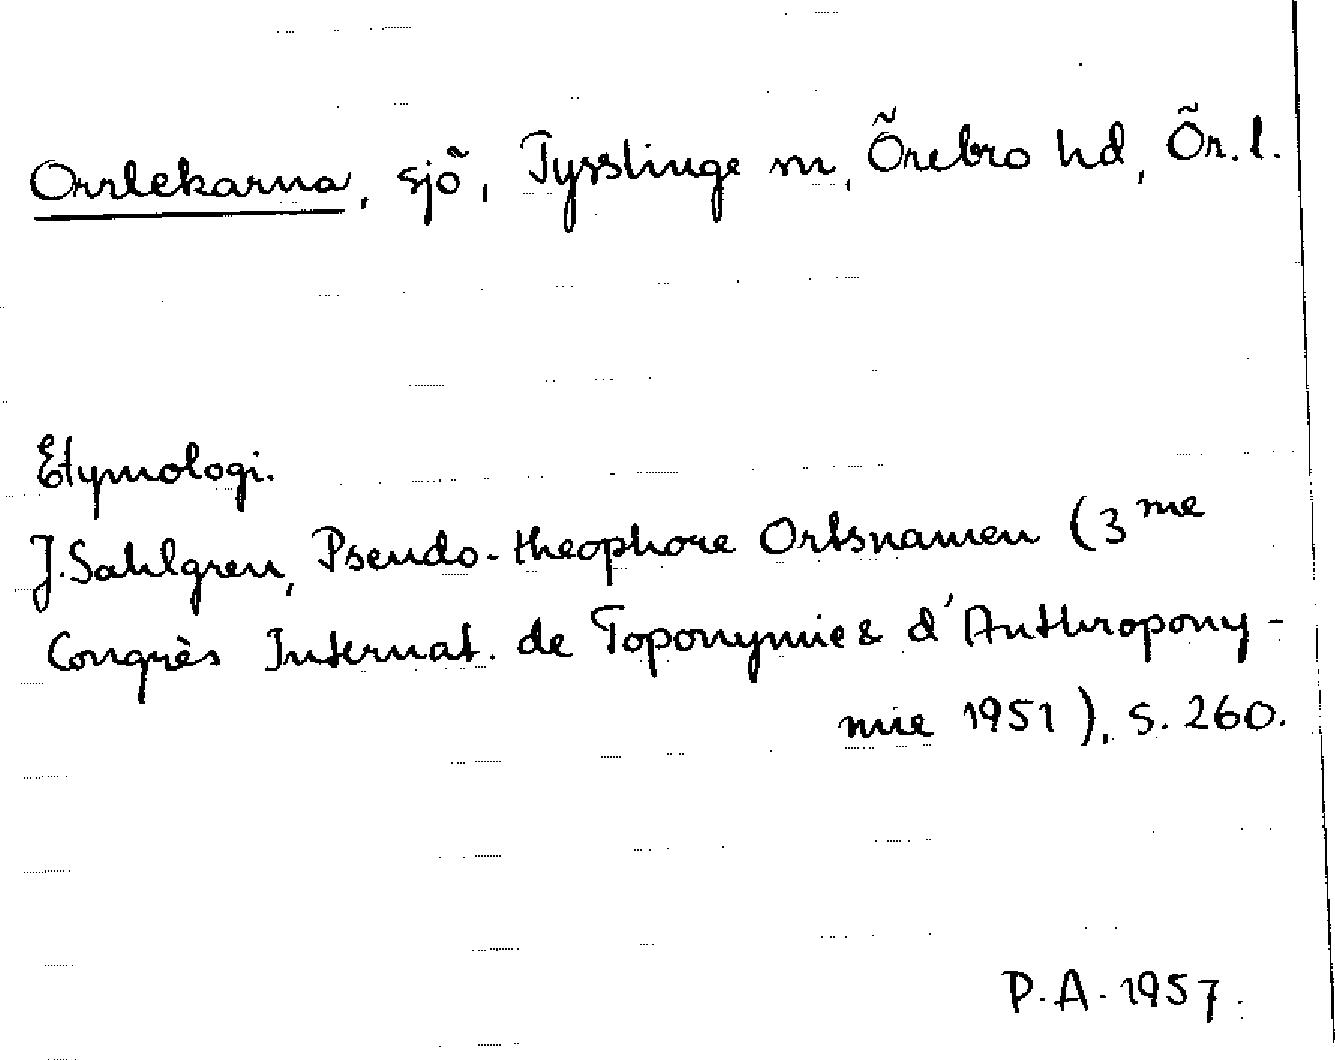 Orrlekarna, sjö, Tysslinge sn, Örebro hd, Ör. l.
Etymologi.
J. Sahlgren, Pseudo-theophore Ortsnamen (3me
Congrès Internat. de Toponymie & d'Anthropony-
mie 1951), s. 260.
P.A. 1957.